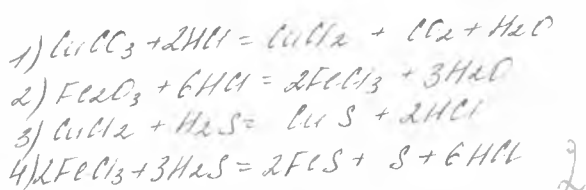 1) CuCO3 + 2HCl = CuCl2 + CO2 + H2O
2) Fe2O3 + 6HCl = 2FeCl3 + 3H2O
3) CuCl2 + H2S = CuS + 2HCl
4) 2FeCl3 + 3H2S = 2FeS + S + 6HCl
2